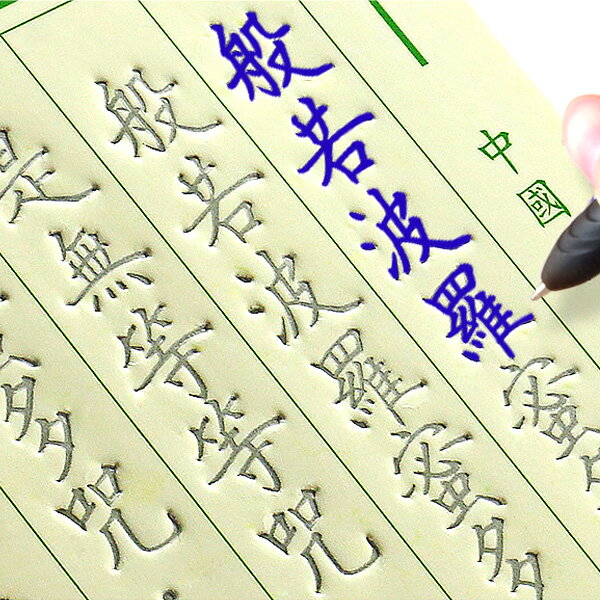 中國
般若波羅蜜
般若波羅蜜多
是無等等咒
多咒